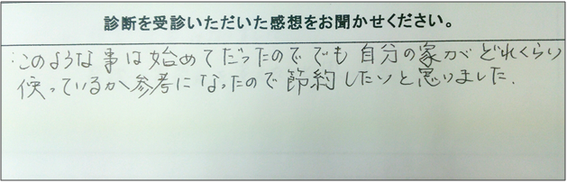 診断を受診いただいた感想をお聞かせください。
このような事は始めてだったのででも自分の家がどれくらい
使っているか参考になったので節約したいと思いました.